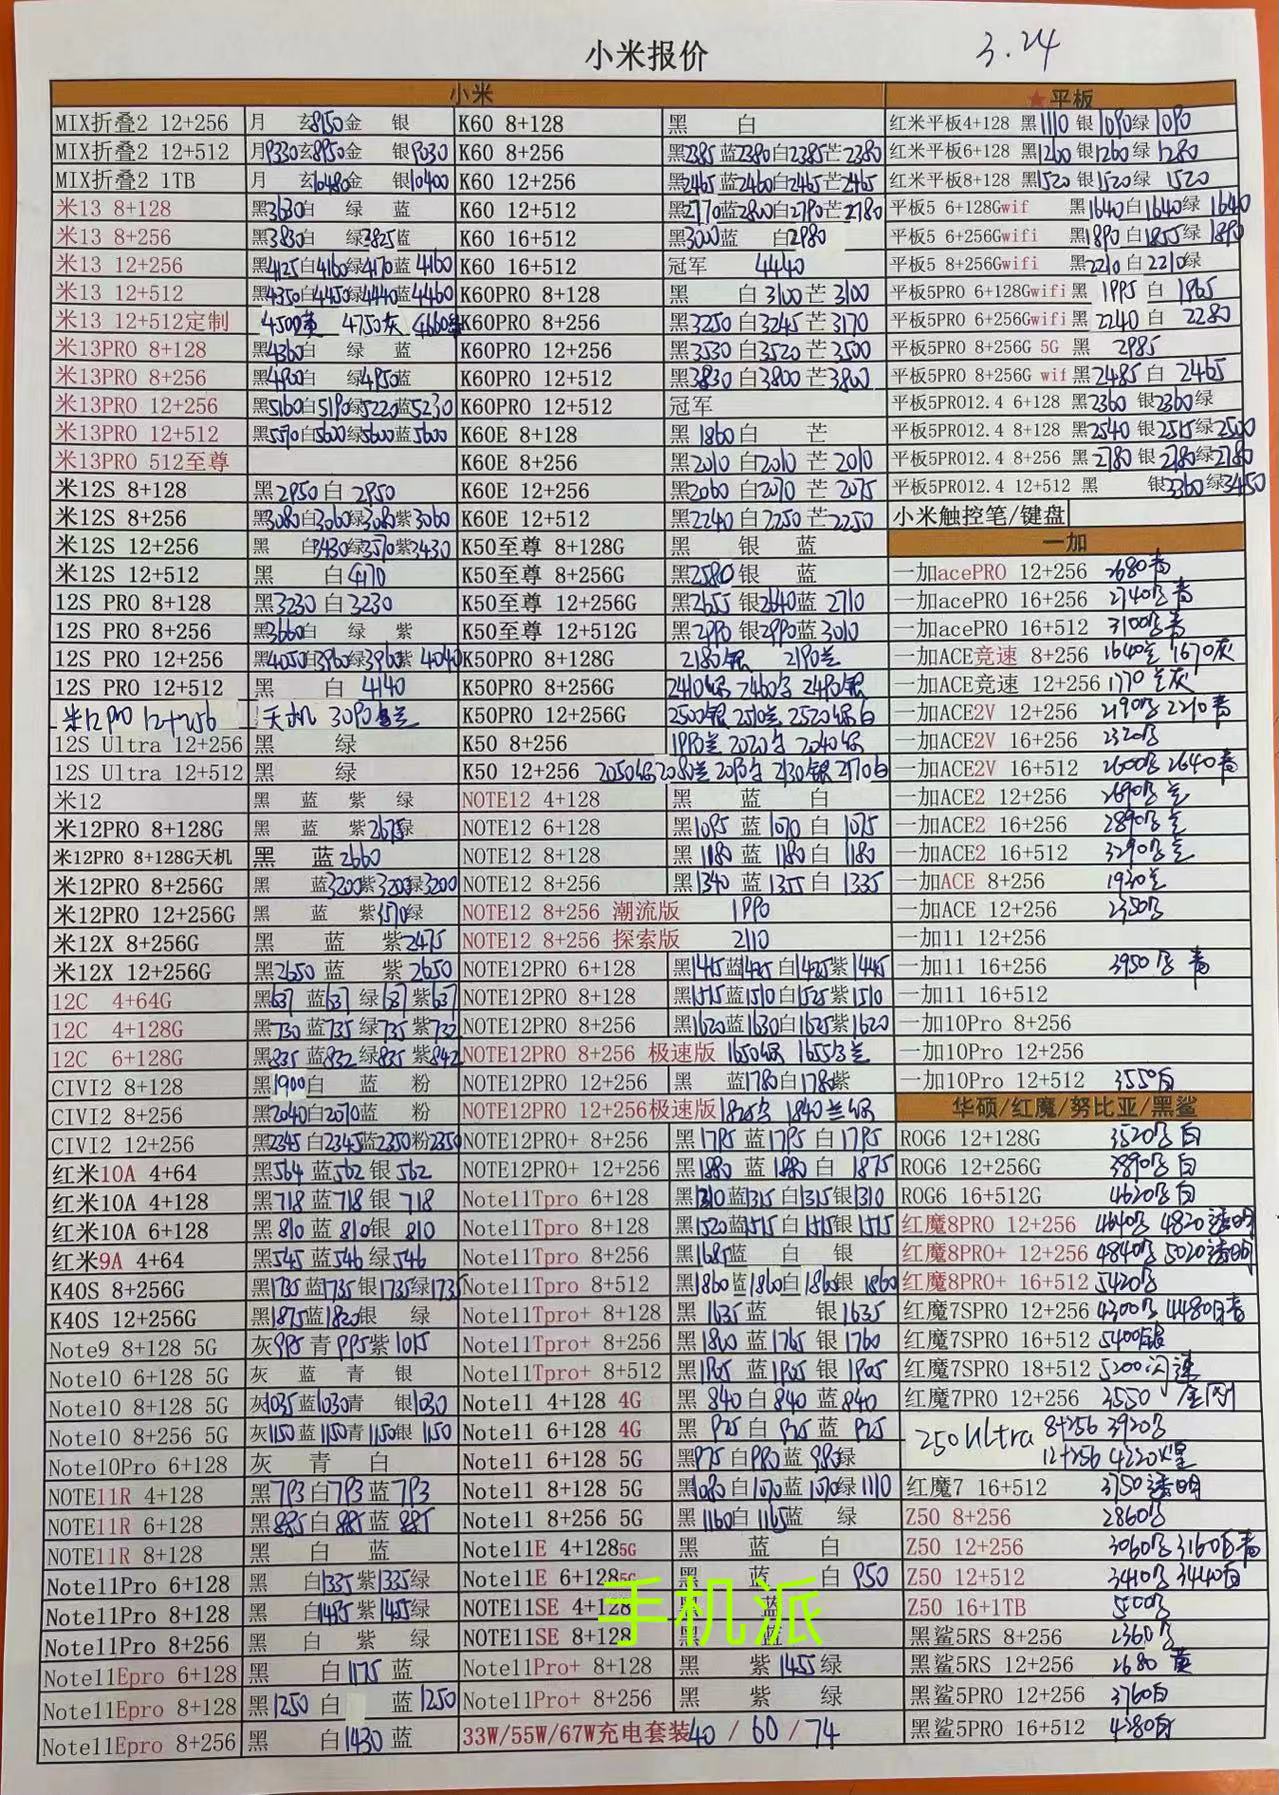 小米报价
3.24
小米
MIX折叠2 12+256 月 玄8150金 银
MIX折叠2 12+512 月9330玄8950金 银9030
MIX折叠2 1TB 月 玄10480金 银10400
米13 8+128 黑3630白 绿 蓝
米13 8+256 黑3830白 绿3825蓝
米13 12+256 黑4125白4160绿4170蓝4160
米13 12+512 黑4350白4450绿4440蓝4460
米13 12+512定制 4500 4750灰 4660
米13PRO 8+128 黑4360白 绿 蓝
米13PRO 8+256 黑4900白 绿4950蓝
米13PRO 12+256 黑5160白5190绿5220蓝5230
米13PRO 12+512 黑5590白5600绿5600蓝5600
米13PRO 512至尊
米12S 8+128 黑2950白 2950
米12S 8+256 黑3080白3060绿3080紫3060
米12S 12+256 黑 白3430绿3570紫3430
米12S 12+512 黑 白4170
12S PRO 8+128 黑3230白3230
12S PRO 8+256 黑3660白 绿 紫
12S PRO 12+256 黑4050白3960绿3960紫4040
12S PRO 12+512 黑 白 4140
米12pro 12+256 天机 3090 兰
12S Ultra 12+256 黑 绿
12S Ultra 12+512 黑 绿
米12 黑 蓝 紫 绿
米12PRO 8+128G 黑 蓝 紫2675绿
米12PRO 8+128G天机 黑 蓝2660
米12PRO 8+256G 黑 蓝3200紫3200绿3200
米12PRO 12+256G 黑 蓝 紫3570绿
米12X 8+256G 黑 蓝 紫2475
米12X 12+256G 黑2650蓝 紫2650
12C 4+64G 黑637 蓝637 绿637 紫637
12C 4+128G 黑730 蓝735 绿735 紫732
12C 6+128G 黑835 蓝832 绿835 紫842
CIVI2 8+128 黑1900白 蓝 粉
CIVI2 8+256 黑2040白2070蓝 粉
CIVI2 12+256 黑2345白2345蓝2350粉2350
红米10A 4+64 黑564 蓝562 银562
红米10A 4+128 黑718 蓝718 银718
红米10A 6+128 黑810 蓝810银 810
红米9A 4+64 黑545 蓝546 绿546
K40S 8+256G 黑1735蓝1735银1735绿1735
K40S 12+256G 黑1875蓝1820银 绿
Note9 8+128 5G 灰995青995紫1015
Note10 6+128 5G 灰 蓝 青 银
Note10 8+128 5G 灰1035蓝1030青 银1030
Note10 8+256 5G 灰1150蓝1150青1150银1150
Note10Pro 6+128 灰 青 白
NOTE11R 4+128 黑793白793蓝793
NOTE11R 6+128 黑885白885蓝885
NOTE11R 8+128 黑 白 蓝
Note11Pro 6+128 黑 白1335紫1335绿
Note11Pro 8+128 黑 白1495紫1455绿
Note11Pro 8+256 黑 白 紫 绿
Note11Epro 6+128 黑 白1175蓝
Note11Epro 8+128 黑1250白 蓝1250
Note11Epro 8+256 黑 白1430蓝
K60 8+128 黑 白
K60 8+256 黑2385蓝2380白2385芒2380
K60 12+256 黑2465蓝2460白2465芒2465
K60 12+512 黑2770蓝2800白2790芒2780
K60 16+512 黑3000蓝 白2980
K60 16+512 冠军 4440
K60PRO 8+128 黑 白3100芒3100
K60PRO 8+256 黑3250白3245芒3170
K60PRO 12+256 黑3530白3520芒3500
K60PRO 12+512 黑3830白3800芒3800
K60PRO 12+512 冠军
K60E 8+128 黑1860白 芒
K60E 8+256 黑2010白2010芒2010
K60E 12+256 黑2060白2070芒2075
K60E 12+512 黑2240白2250芒2250
K50至尊 8+128G 黑 银 蓝
K50至尊 8+256G 黑2580银 蓝
K50至尊 12+256G 黑2655银2640蓝2710
K50至尊 12+512G 黑2990银2990蓝3010
K50PRO 8+128G 2180银 2190兰
K50PRO 8+256G 2410绿 2460 2490银
K50PRO 12+256G 2500银2510兰2520绿白
K50 8+256 1990兰 2020 2040绿
K50 12+256 2050绿2080兰2090 2130银2170白
NOTE12 4+128 黑 蓝 白
NOTE12 6+128 黑1095蓝1070白1075
NOTE12 8+128 黑1180蓝1180白1180
NOTE12 8+256 黑1340蓝1355白1335
NOTE12 8+256 潮流版 1990
NOTE12 8+256 探索版 2110
NOTE12PRO 6+128 黑1415蓝1425白1425紫1445
NOTE12PRO 8+128 黑1515蓝1510白1525紫1510
NOTE12PRO 8+256 黑1620蓝1630白1625紫1620
NOTE12PRO 8+256 极速版 1650绿 1655 兰
NOTE12PRO 12+256 黑 蓝1780白1780紫
NOTE12PRO 12+256极速版 1825 1840兰绿
NOTE12PRO+ 8+256 黑1795蓝1795白1795
NOTE12PRO+ 12+256 黑1880蓝1880白1875
Note11Tpro 6+128 黑1310蓝1315白1315银1310
Note11Tpro 8+128 黑1520蓝1515白1515银1515
Note11Tpro 8+256 黑1685蓝 白 银
Note11Tpro 8+512 黑1860蓝1860白1860银1860
Note11Tpro+ 8+128 黑1635蓝 银1635
Note11Tpro+ 8+256 黑1800蓝1765银1760
Note11Tpro+ 8+512 黑1905蓝1905银1905
Note11 4+128 4G 黑840白840蓝840
Note11 6+128 4G 黑925白925蓝925
Note11 6+128 5G 黑975白980蓝980绿
Note11 8+128 5G 黑1080白1070蓝1070绿1110
Note11 8+256 5G 黑1160白1165蓝 绿
Note11E 4+128 5G 黑 蓝 白
Note11E 6+128 5G 黑 蓝 白950
NOTE11SE 4+128 蓝
NOTE11SE 8+128 蓝
Note11Pro+ 8+128 黑 紫1455绿
Note11Pro+ 8+256 黑 紫 绿
33W/55W/67W充电套装40 / 60 / 74
★平板
红米平板4+128 黑1110 银1090绿1090
红米平板6+128 黑1260 银1260绿1280
红米平板8+128 黑1520 银1520 1520
平板5 6+128Gwif 黑1640白1640绿1640
平板5 6+256Gwifi 黑1890白1855绿1890
平板5 8+256Gwifi 黑2210白2210绿
平板5PRO 6+128Gwifi黑1995白1965
平板5PRO 6+256Gwifi黑2240白2280
平板5PRO 8+256G 5G 黑 2985
平板5PRO 8+256G wif黑2485白2465
平板5PRO12.4 6+128 黑2360 银2360绿
平板5PRO12.4 8+128 黑2540 银2515绿2500
平板5PRO12.4 8+256 黑2780 银2780绿2780
平板5PRO12.4 12+512 黑 银3360绿3450
小米触控笔/键盘
一加
一加acePRO 12+256 2680青
一加acePRO 16+256 2740 青
一加acePRO 16+512 3100 青
一加ACE竞速 8+256 1640兰 1670灰
一加ACE竞速 12+256 1770兰灰
一加ACE2V 12+256 2190 2210青
一加ACE2V 16+256 2320
一加ACE2V 16+512 2600 2640青
一加ACE2 12+256 2690 兰
一加ACE2 16+256 2890 兰
一加ACE2 16+512 3290 兰
一加ACE 8+256 1930兰
一加ACE 12+256 2350
一加11 12+256
一加11 16+256 3950 青
一加11 16+512
一加10Pro 8+256
一加10Pro 12+256
一加10Pro 12+512 3550白
华硕/红魔/努比亚/黑鲨
ROG6 12+128G 3520 白
ROG6 12+256G 3890 白
ROG6 16+512G 4620 白
红魔8PRO 12+256 4640 4820透明
红魔8PRO+ 12+256 4840 5020透明
红魔8PRO+ 16+512 5420
红魔7SPRO 12+256 4300 4480 青
红魔7SPRO 16+512 5400银
红魔7SPRO 18+512 5200
红魔7PRO 12+256 3550 金刚
Z50Ultra 8+256 3920
12+256 4220
红魔7 16+512 3750透明
Z50 8+256 2860
Z50 12+256 3060 3160 青
Z50 12+512 3410 3440白
Z50 16+1TB 5000
黑鲨5RS 8+256 2360
黑鲨5RS 12+256 2680
黑鲨5PRO 12+256 3760白
黑鲨5PRO 16+512 4280白
手机派